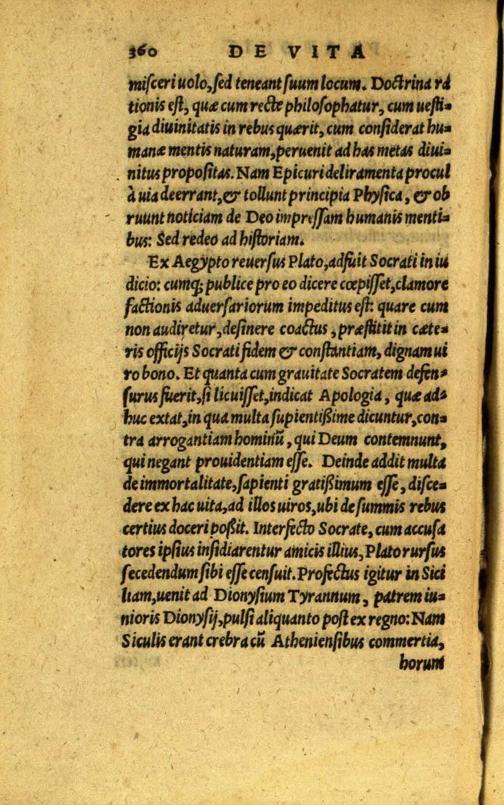 360 DE VITA
misceri uolo, sed teneant suum locum. Doctrina ra
tionis est, quæ cum recte philosophatur, cum uesti=
gia diuinitatis in rebus quærit, cum considerat hu=
manæ mentis naturam, peruenit ad has metas diui=
nitus propositas. Nam Epicuri deliramenta procul
à uia deerrant, & tollunt principia Physica, & ob
ruunt noticiam de Deo impressam humanis menti=
bus: Sed redeo ad historiam.
Ex Aegypto reuersus Plato, adfuit Socrati in iu
dicio: cumq; publice pro eo dicere cœpisset, clamore
factionis aduersariorum impeditus est: quare cum
non audiretur, desinere coactus, præstitit in cæte=
ris officijs Socrati fidem & constantiam, dignam ui
ro bono. Et quanta cum grauitate Socratem defen=
surus fuerit, si licuisset, indicat Apologia, quæ ad=
huc extat, in qua multa sapientißime dicuntur, con=
tra arrogantiam hominũ, qui Deum contemnunt,
qui negant prouidentiam esse. Deinde addit multa
de immortalitate, sapienti gratißimum esse, disce=
dere ex hac uita, ad illos uiros, ubi de summis rebus
certius doceri poßit. Interfecto Socrate, cum accusa
tores ipsius insidiarentur amicis illius, Plato rursus
secedendum sibi esse censuit. Profectus igitur in Sici
liam, uenit ad Dionysium Tyrannum, patrem iu=
nioris Dionysij, pulsi aliquanto post ex regno: Nam
Siculis erant crebra cũ Atheniensibus commertia,
horum